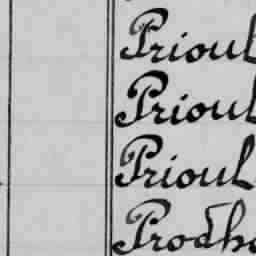 Prioul
Prioul
Prioul
Prodho